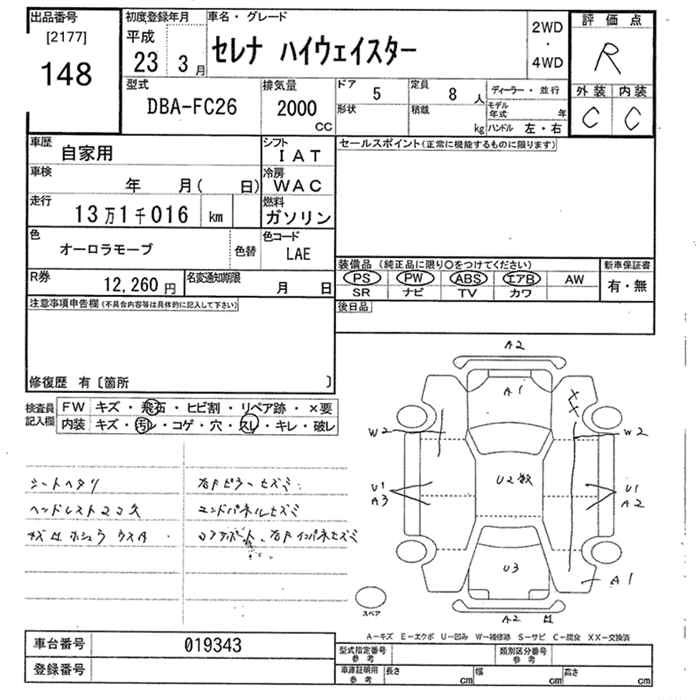 出品番号
[2177]
148
初度登録年月
平成
23 3月
車名・グレード
セレナ ハイウェイスター
2WD
・
4WD
評価点
R
外装 内装
C C
型式
DBA-FC26
排気量
2000
cc
ドア
5
形状
定員
8 人
積載
kg
ディーラー・並行
モデル年式 年
ハンドル 左・右
車歴
自家用
シフト
IAT
セールスポイント(正常に機能するものに限ります)
車検
年 月( 日)
冷房
WAC
走行
13万1千016 km
燃料
ガソリン
色
オーロラモーブ
色替
色コード
LAE
装備品(純正品に限り○をつけてください)
PS PW ABS エアB AW
SR ナビ TV カワ
新車保証書
有・無
R券
12,260円
名変通知期限
月 日
後日品
注意事項申告欄(不具合内容等は具体的に記入して下さい)
修復歴 有〔箇所 〕
検査員記入欄
FW キズ・飛石・ヒビ割・リペア跡・×要
内装 キズ・汚レ・コゲ・穴・スレ・キレ・破レ
シートヘタリ
ヘッドレスト
右Fピラーヒズミ
エンドパネルヒズミ
右Fインパネヒズミ
A2
A1
W2
W2
U2数
U1
A3
U1
A2
U3
A1
A2
スペア
A−キズ E−エクボ U−凹み W−補修跡 S−サビ C−腐食 XX−交換済
車台番号
019343
登録番号
型式指定番号 参考
類別区分番号 参考
車庫証明用 参考
長さ cm 幅 cm 高さ cm